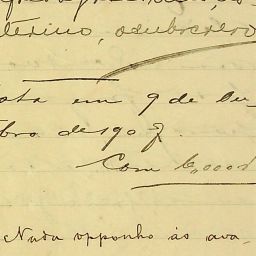 terino, o subscrevo
ota em 9 de Ou-
bro de 190 7.
Com 6,000 d
Nada opponho ás ava-